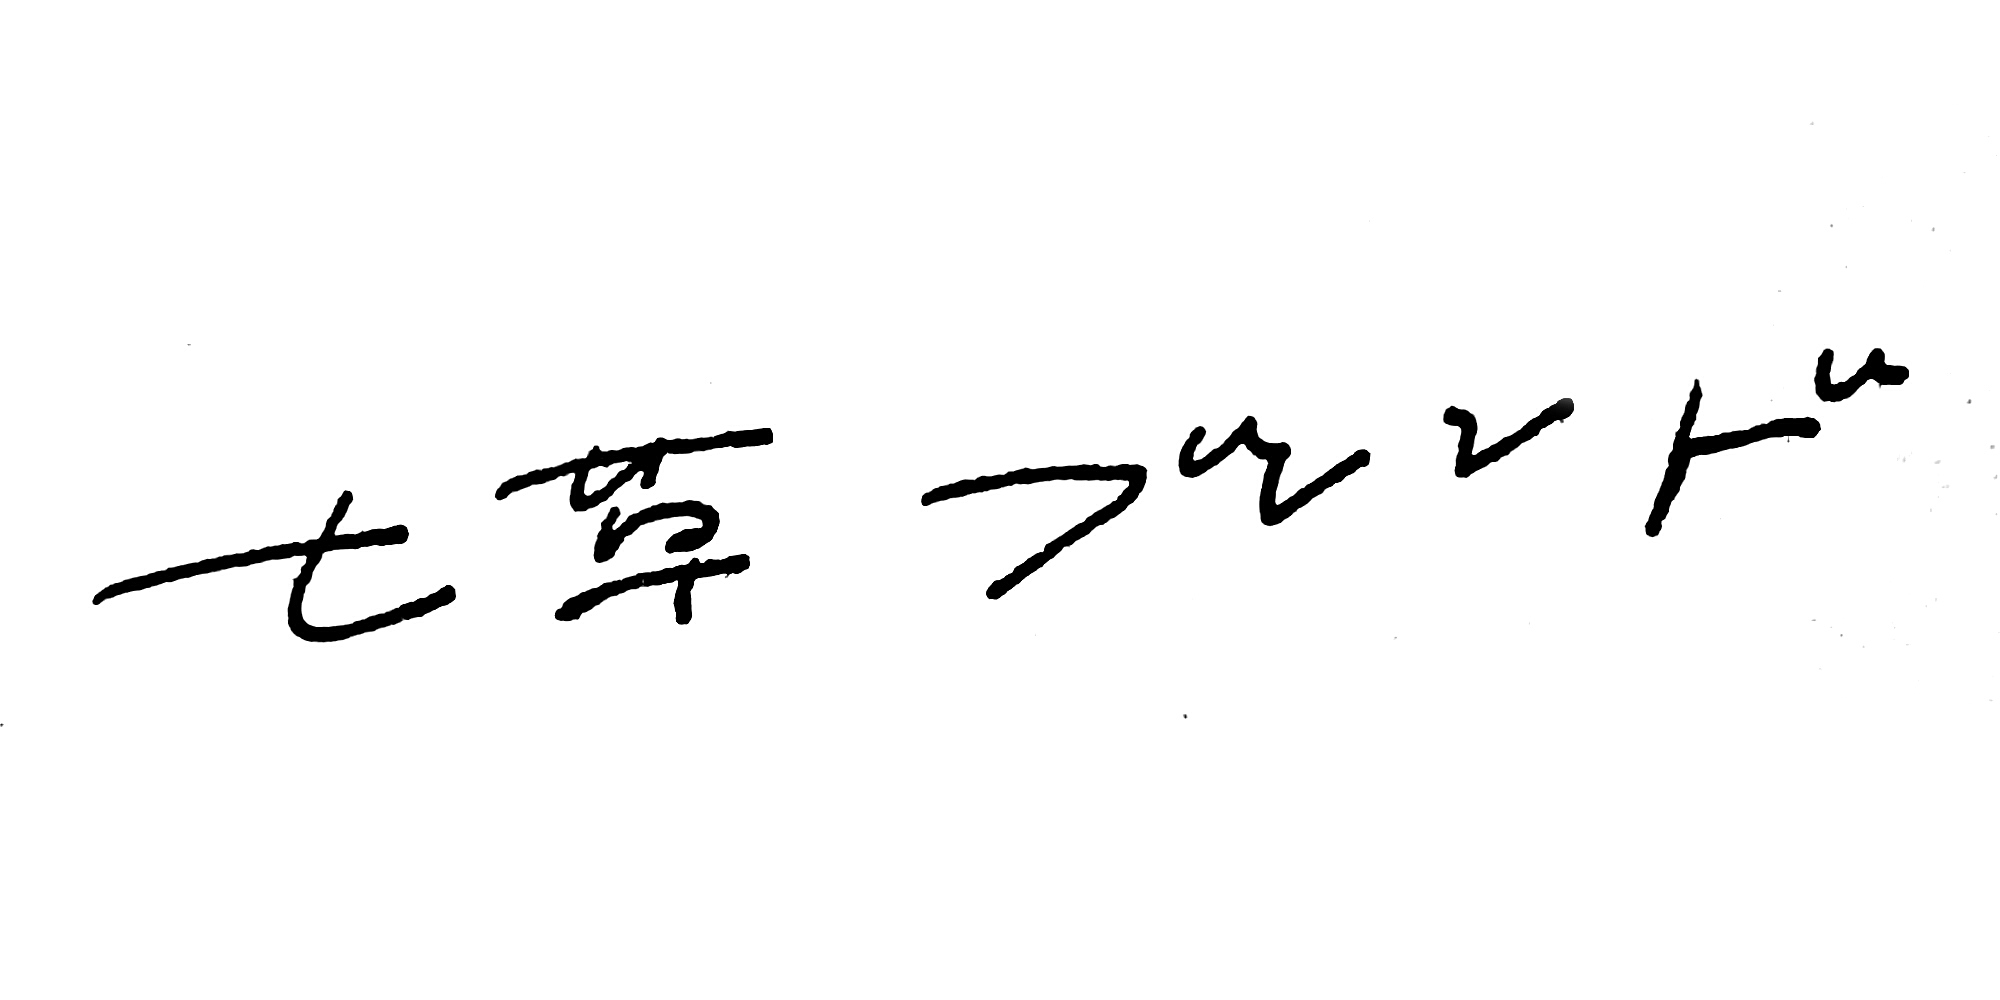 七草ブレンド